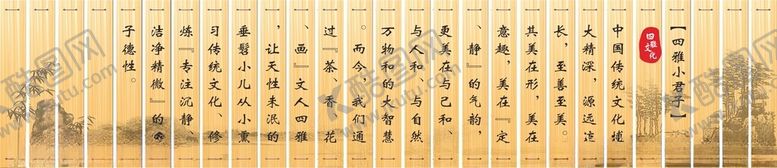 【四雅小君子】
四雅文化
中国传统文化博
大精深，源远流
长，至善至美。
其美在形，美在
意趣，美在『定
、静』的气韵，
更美在与己和、
与人和、与自然
万物和的大智慧
。而今，我们通
过『茶、香、花
、画』文人四雅
，让天性未泯的
垂髫小儿从小熏
习传统文化、修
炼『专注沉静、
洁净精微』的君
子德性。